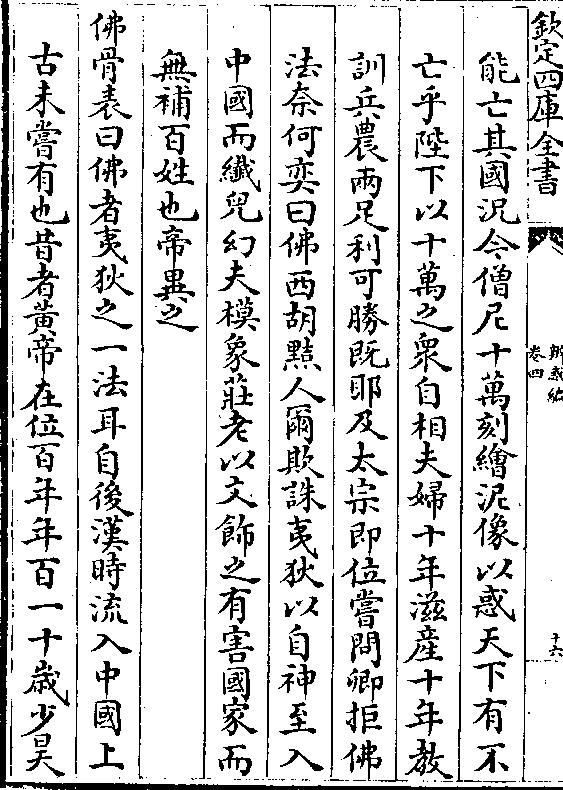 欽定四庫全書
辨惑編
卷四
十六
能亡其國况今僧尼十萬刻繪泥像以惑天下有不
亡乎陛下以十萬之衆自相夫婦十年滋産十年教
訓兵農兩足利可勝既耶及太宗即位嘗問卿拒佛
法奈何奕曰佛西胡黠人爾欺訹夷狄以自神至入
中國而纖兒幻夫模象莊老以文飾之有害國家而
無補百姓也帝異之
佛骨表曰佛者夷狄之一法耳自後漢時流入中國上
古未嘗有也昔者黃帝在位百年年百一十歲少昊